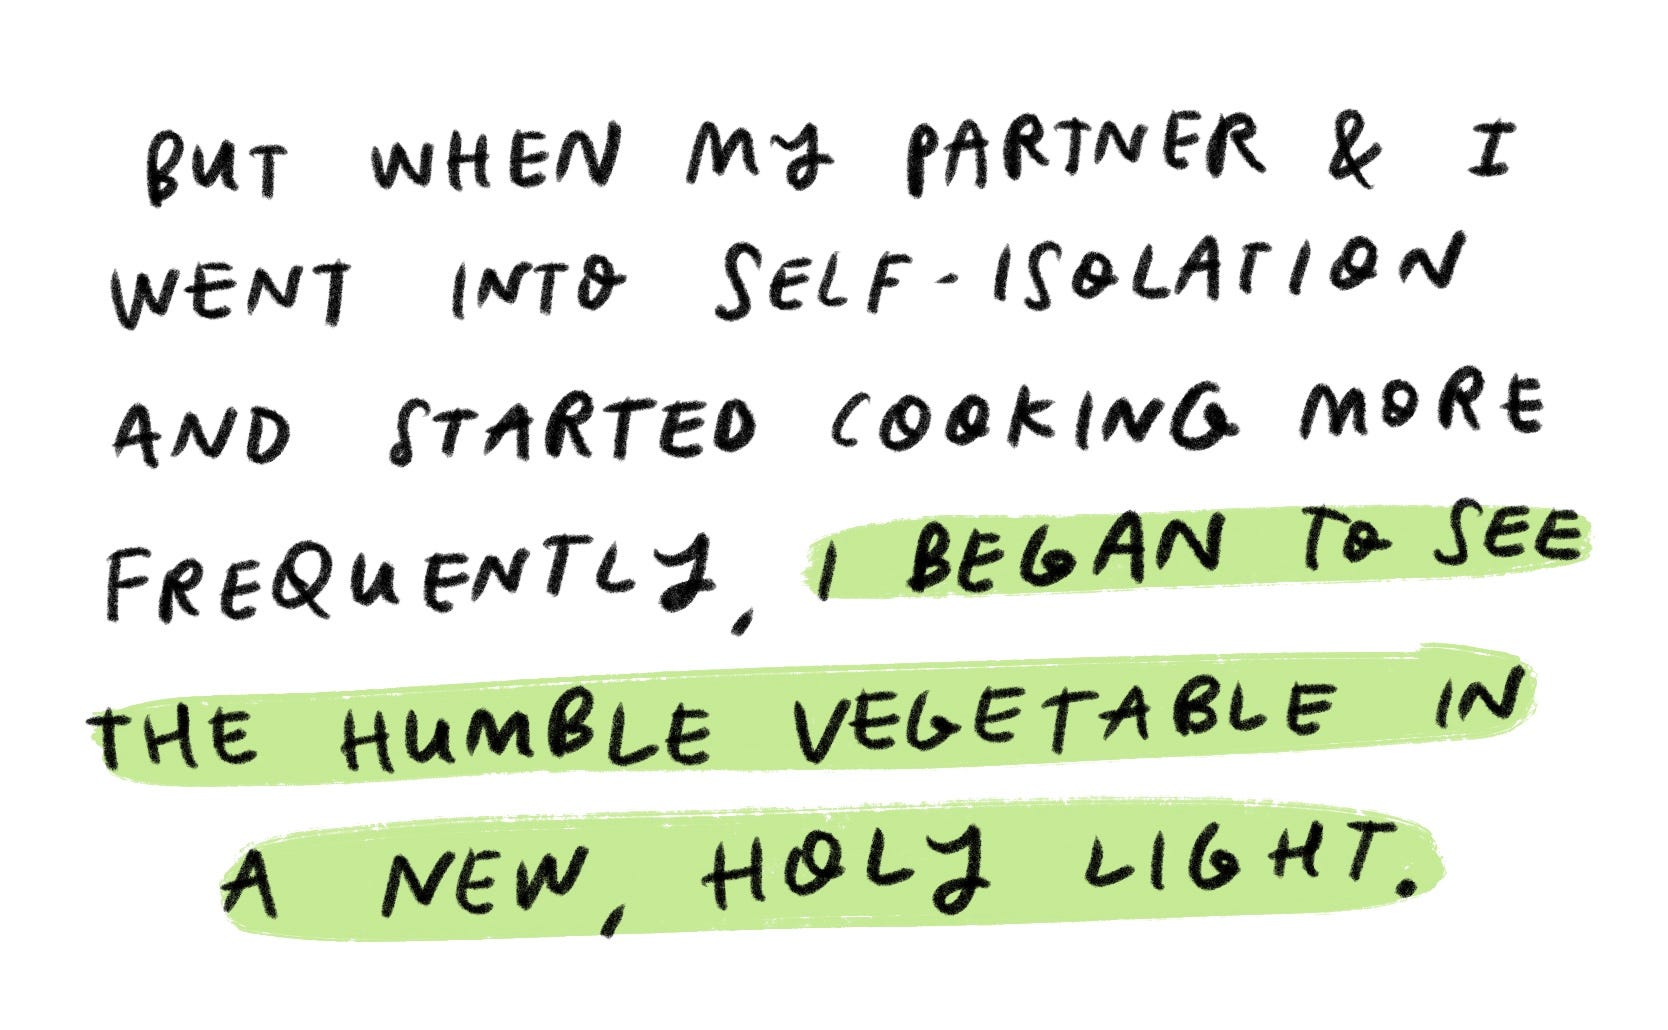 BUT WHEN MY PARTNER & I
WENT INTO SELF-ISOLATION
AND STARTED COOKING MORE
FREQUENTLY, I BEGAN TO SEE
THE HUMBLE VEGETABLE IN
A NEW, HOLY LIGHT.